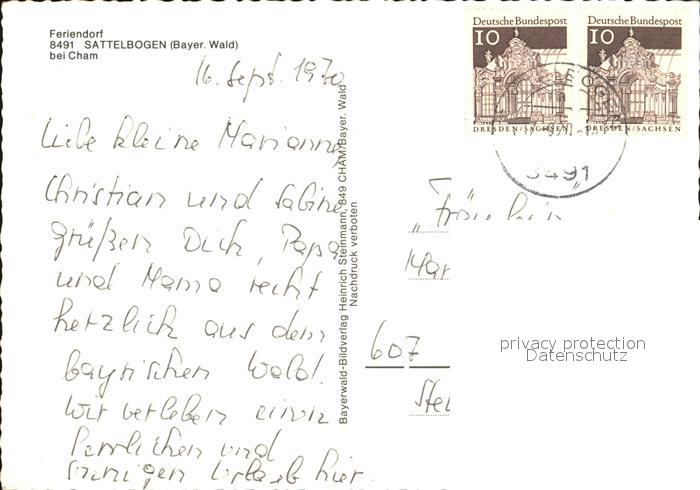 Feriendorf
8491 SATTELBOGEN (Bayer. Wald)
bei Cham
16. Sept. 1970
Liebe kleine Marianne,
Christian und Sabine
grüßen Dich, Papa
und Mama recht
herzlich aus dem
bayrischen Wald.
Wir verleben einen
herrlichen und
sonnigen Urlaub hier.
Bayerwald-Bildverlag Heinrich Steinmann, 849 CHAM/Bayer. Wald
Nachdruck verboten
Deutsche Bundespost
10
DRESDEN/SACHSEN
Deutsche Bundespost
10
DRESDEN/SACHSEN
8491
„Fräulein
Mar
607
privacy protection
Datenschutz